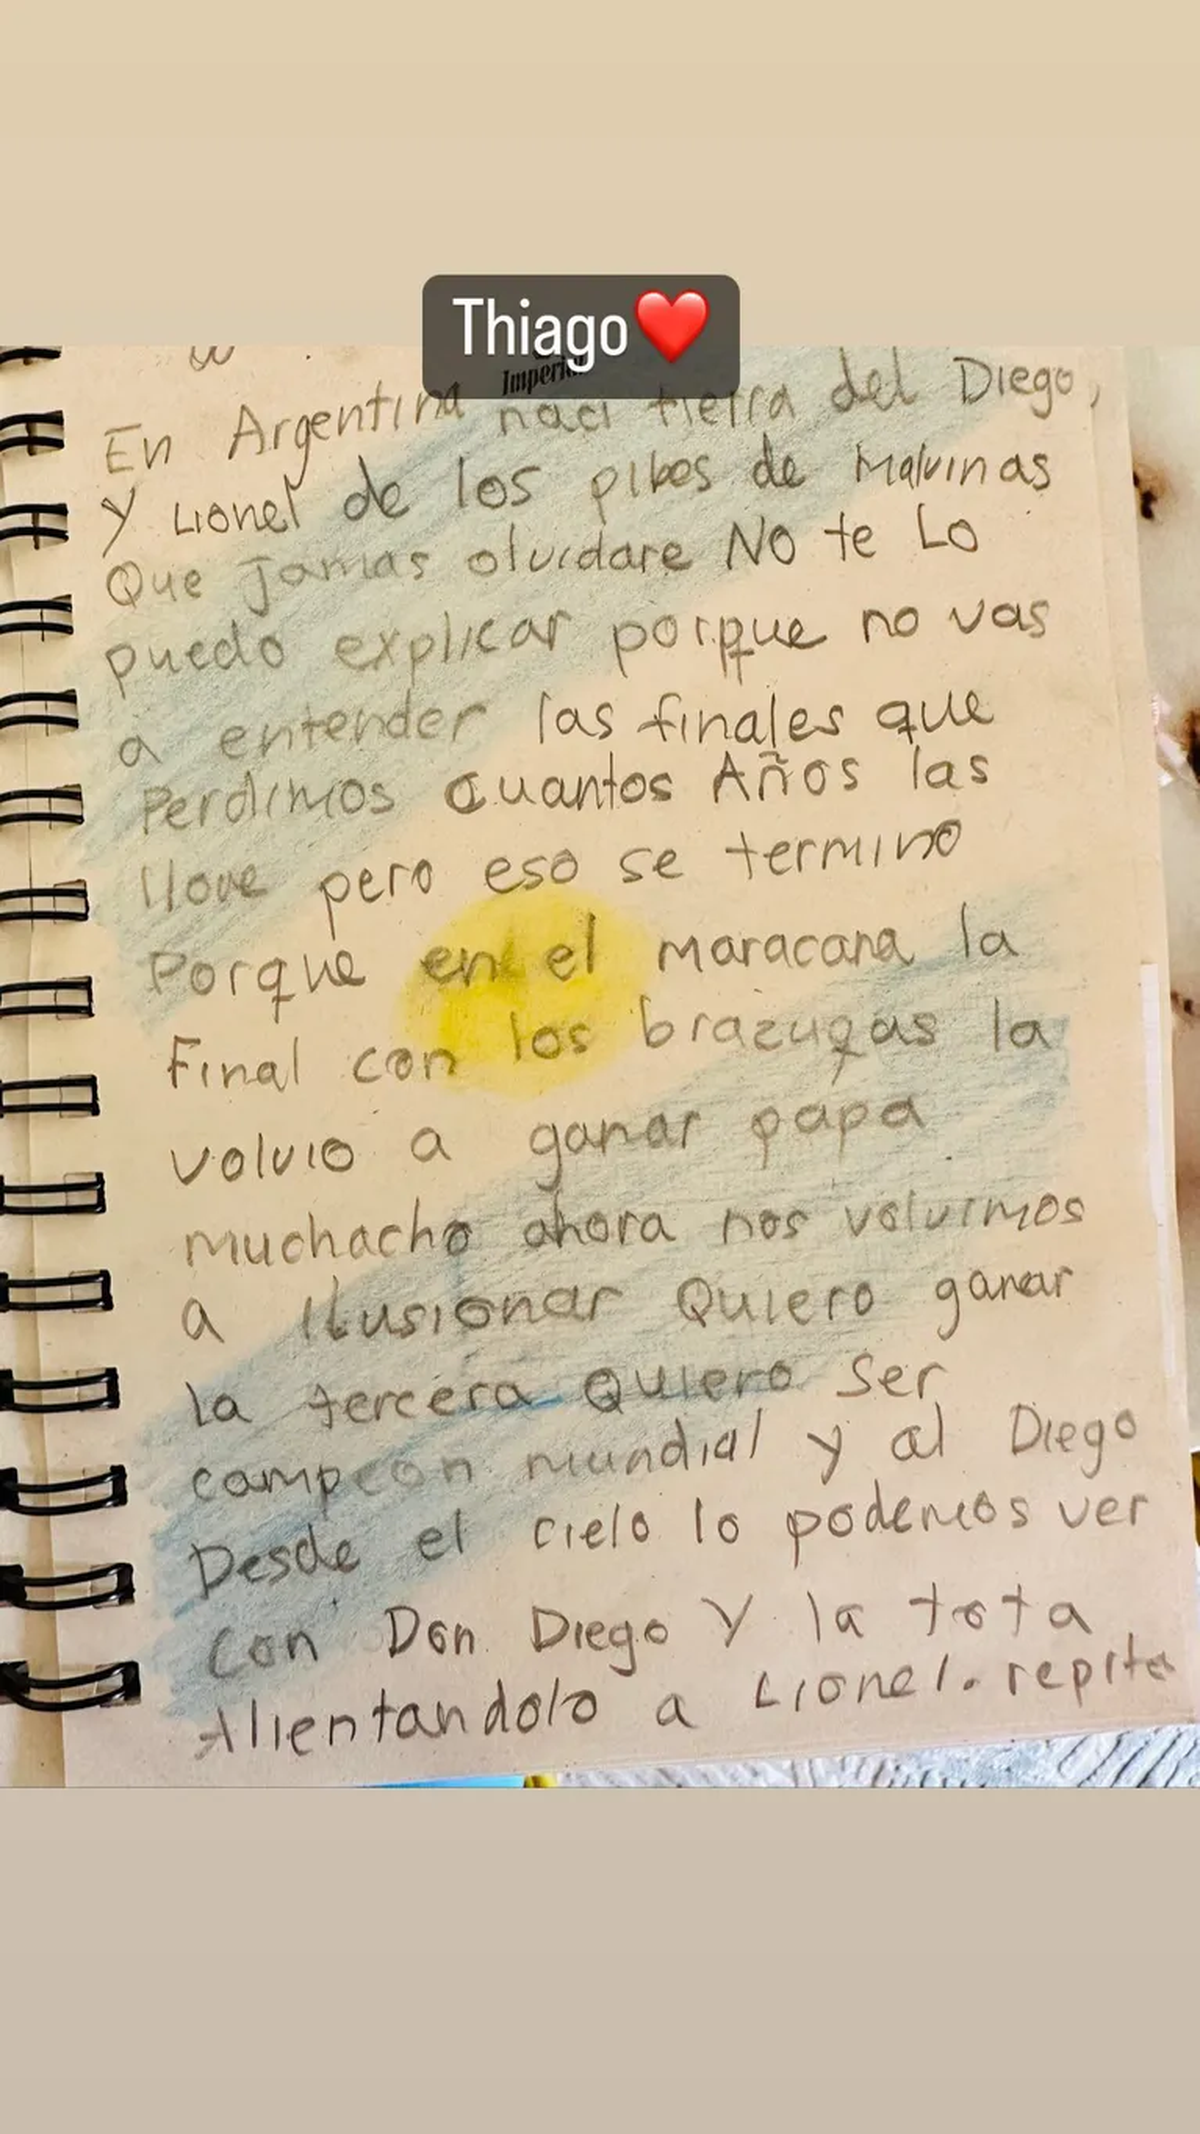 Thiago❤️
Imperi
En Argentina naci tierra del Diego,
Y Lionel de los pibes de Malvinas
Que jamas olvidare NO te Lo
puedo explicar porque no vas
a entender las finales que
Perdimos cuantos Años las
llore pero eso se termino
Porque en el maracana la
Final con los brazuqas la
volvio a ganar papa
muchacho ahora nos volvimos
a ilusionar Quiero ganar
la tercera Quiero ser
campeon mundial y al Diego
Desde el cielo lo podemos ver
Con Don Diego Y la tota
Alientandolo a Lionel. repite